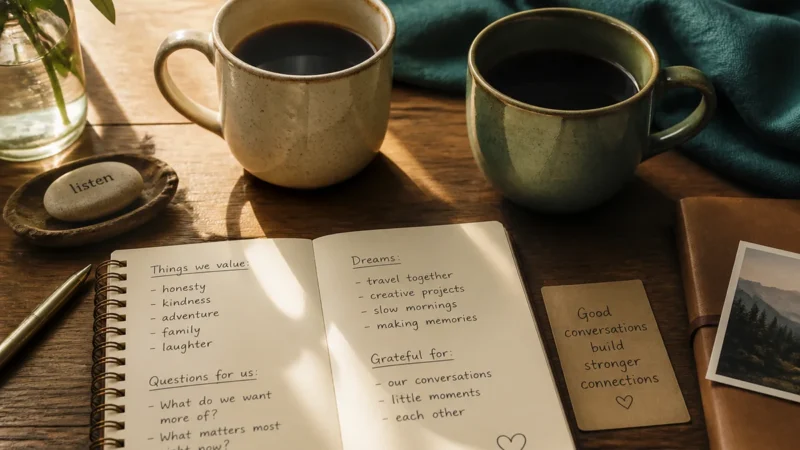 listen
Things we value:
- honesty
- kindness
- adventure
- family
- laughter
Questions for us:
- What do we want
more of?
- What matters most
now?
Dreams:
- travel together
- creative projects
- slow mornings
- making memories
Grateful for:
- our conversations
- little moments
- each other
Good
conversations
build
stronger
connections